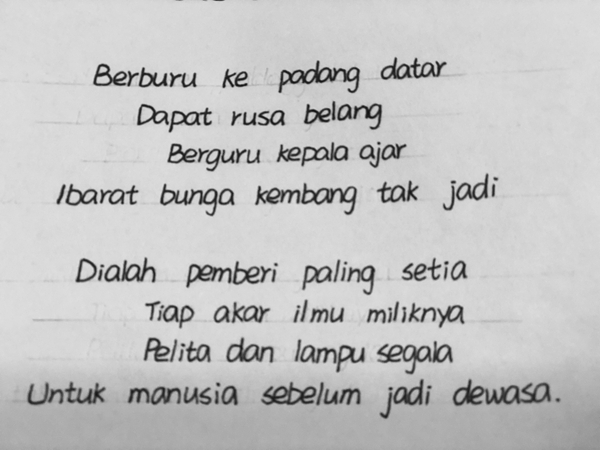 Berburu ke padang datar
Dapat rusa belang
Berguru kepala ajar
Ibarat bunga kembang tak jadi
Dialah pemberi paling setia
Tiap akar ilmu miliknya
Pelita dan lampu segala
Untuk manusia sebelum jadi dewasa.